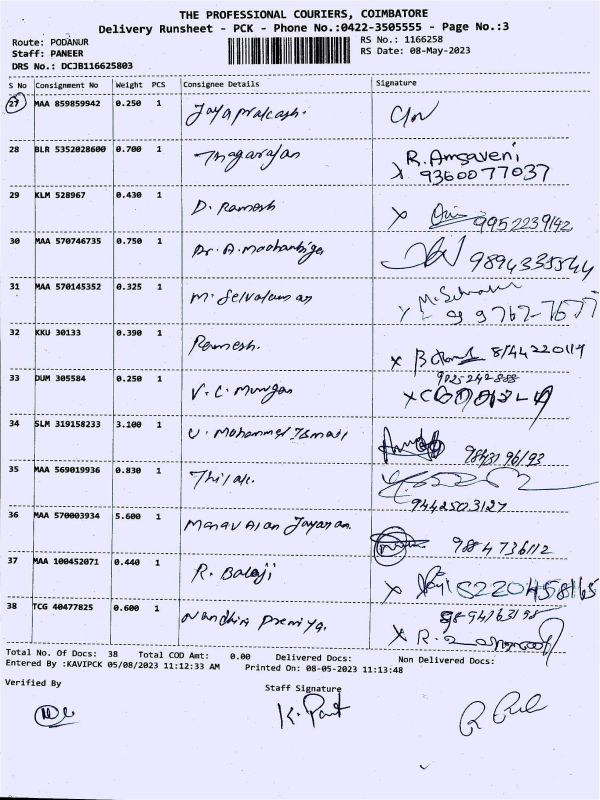 THE PROFESSIONAL COURIERS, COIMBATORE
Delivery Runsheet - PCK - Phone No.:0422-3505555 - Page No.:3
Route: PODANUR
RS No.: 1166258
Staff: PANEER
RS Date: 08-May-2023
DRS No.: DCJB116625803
S No Consignment No Weight PCS Consignee Details Signature
27 MAA 859859942 0.250 1 Jayaprakash.
28 BLR 5352028600 0.700 1 Thagarajan R. Amsaveni
9360077037
29 KLM 528967 0.430 1 D. Ramesh
9952239142
30 MAA 570746735 0.750 1 Dr. A.
9894335544
31 MAA 570145352 0.325 1
32 KKU 30133 0.390 1 Ramesh.
33 DUM 305584 0.250 1 V. C. Murugan
34 SLM 319158233 3.100 1 U. Mohammed Ismail
35 MAA 569019936 0.830 1 Thilak.
9442503127
36 MAA 570003934 5.600 1
9884736112
37 MAA 100452071 0.440 1 R. Balaji
38 TCG 40477825 0.600 1 Nandhini Premiya.
Total No. Of Docs: 38 Total COD Amt: 0.00 Delivered Docs: Non Delivered Docs:
Entered By :KAVIPCK 05/08/2023 11:12:33 AM Printed On: 08-05-2023 11:13:48
Verified By
Staff Signature